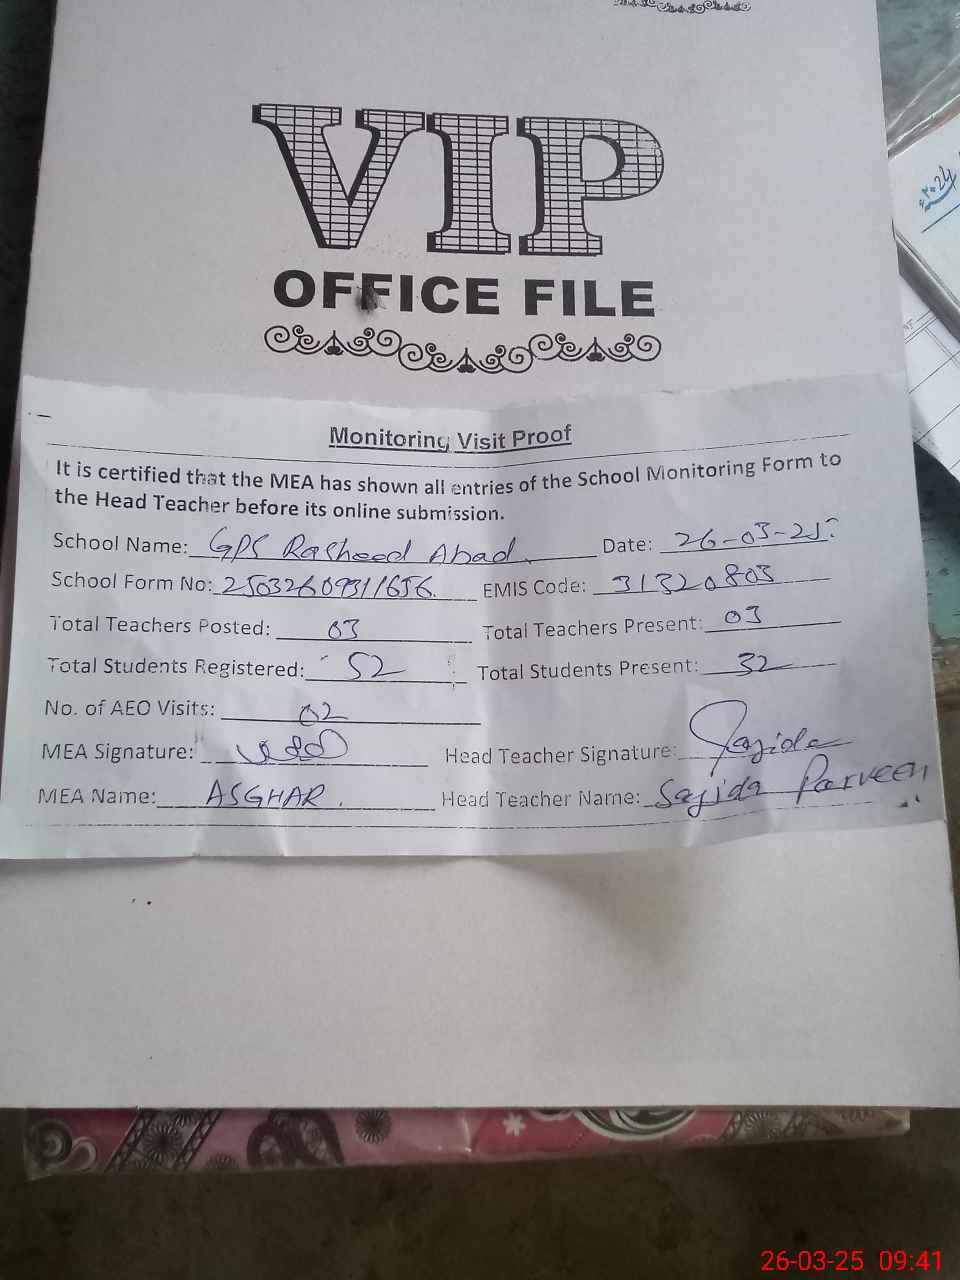 VIP
OFFICE FILE
Monitoring Visit Proof
It is certified that the MEA has shown all entries of the School Monitoring Form to
the Head Teacher before its online submission.
School Name: GPS Rasheed Abad Date: 26-03-25
School Form No: EMIS Code: 31320803
Total Teachers Posted: 03 Total Teachers Present: 03
Total Students Registered: 52 Total Students Present: 32
No. of AEO Visits: 02
MEA Signature: Head Teacher Signature: Sajida
MEA Name: ASGHAR. Head Teacher Name: Sajida Parveen
26-03-25 09:41